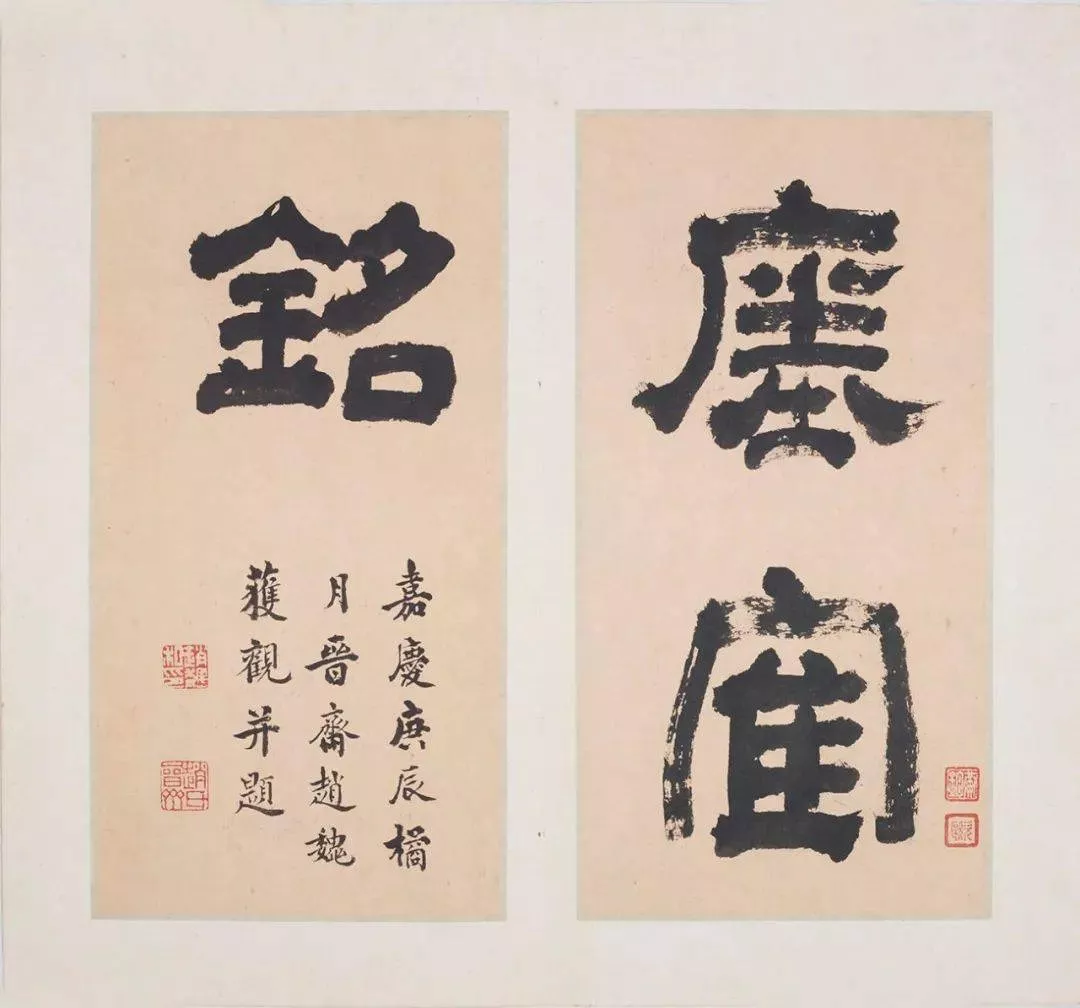 瘞寉
銘
嘉慶庚辰橘
月晉齋趙魏
獲觀并題